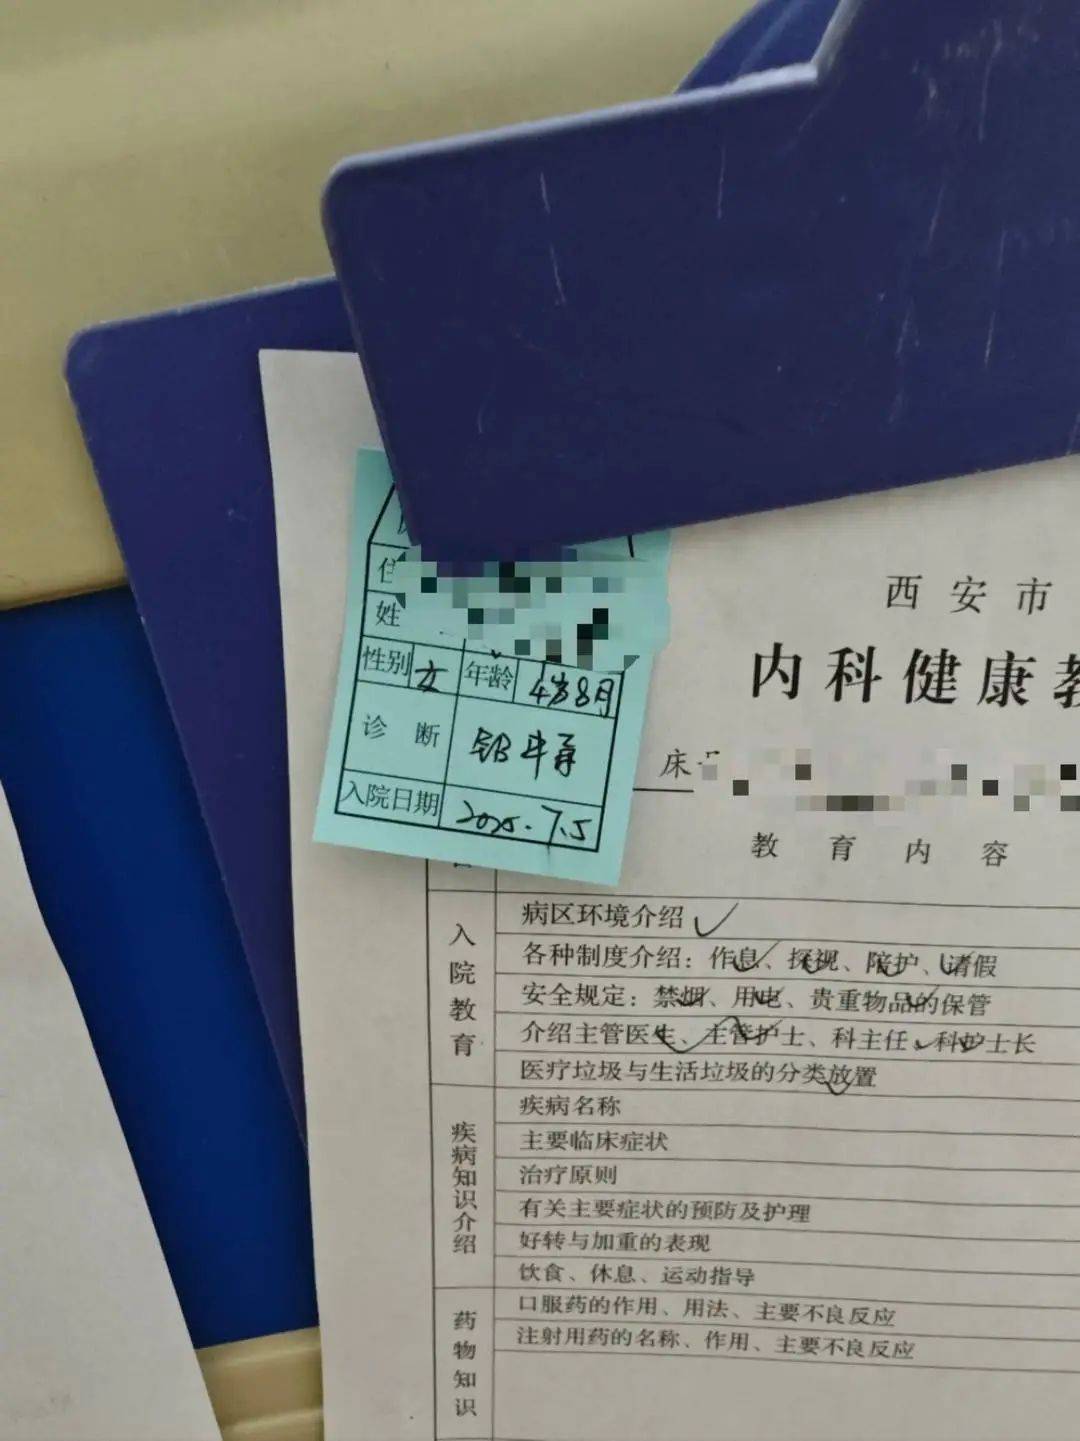 姓
性别 女 年龄 4岁8月
诊断 铅中毒
入院日期 2025.7.5
西安市
内科健康教
床
教育内容
入院教育
病区环境介绍
各种制度介绍：作息、探视、陪护、请假
安全规定：禁烟、用电、贵重物品的保管
介绍主管医生、主管护士、科主任、科护士长
医疗垃圾与生活垃圾的分类放置
疾病知识介绍
疾病名称
主要临床症状
治疗原则
有关主要症状的预防及护理
好转与加重的表现
饮食、休息、运动指导
药物知识
口服药的作用、用法、主要不良反应
注射用药的名称、作用、主要不良反应